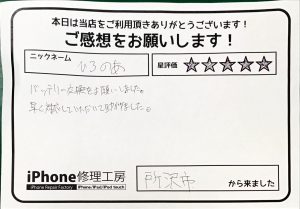 本日は当店をご利用頂きありがとうございます！
ご感想をお願いします！
ニックネーム
ひろのあ
星評価
★★★★★
バッテリー交換をお願いしました。
早く対応していただいて助かりました。
iPhone修理工房
iPhone Repair Factory
iPhone/iPad/iPod touch
所沢市
から来ました